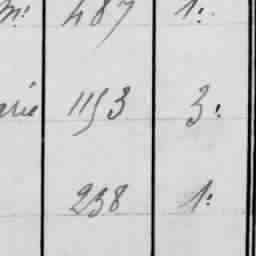 487 1:
1153 3:
238 1: